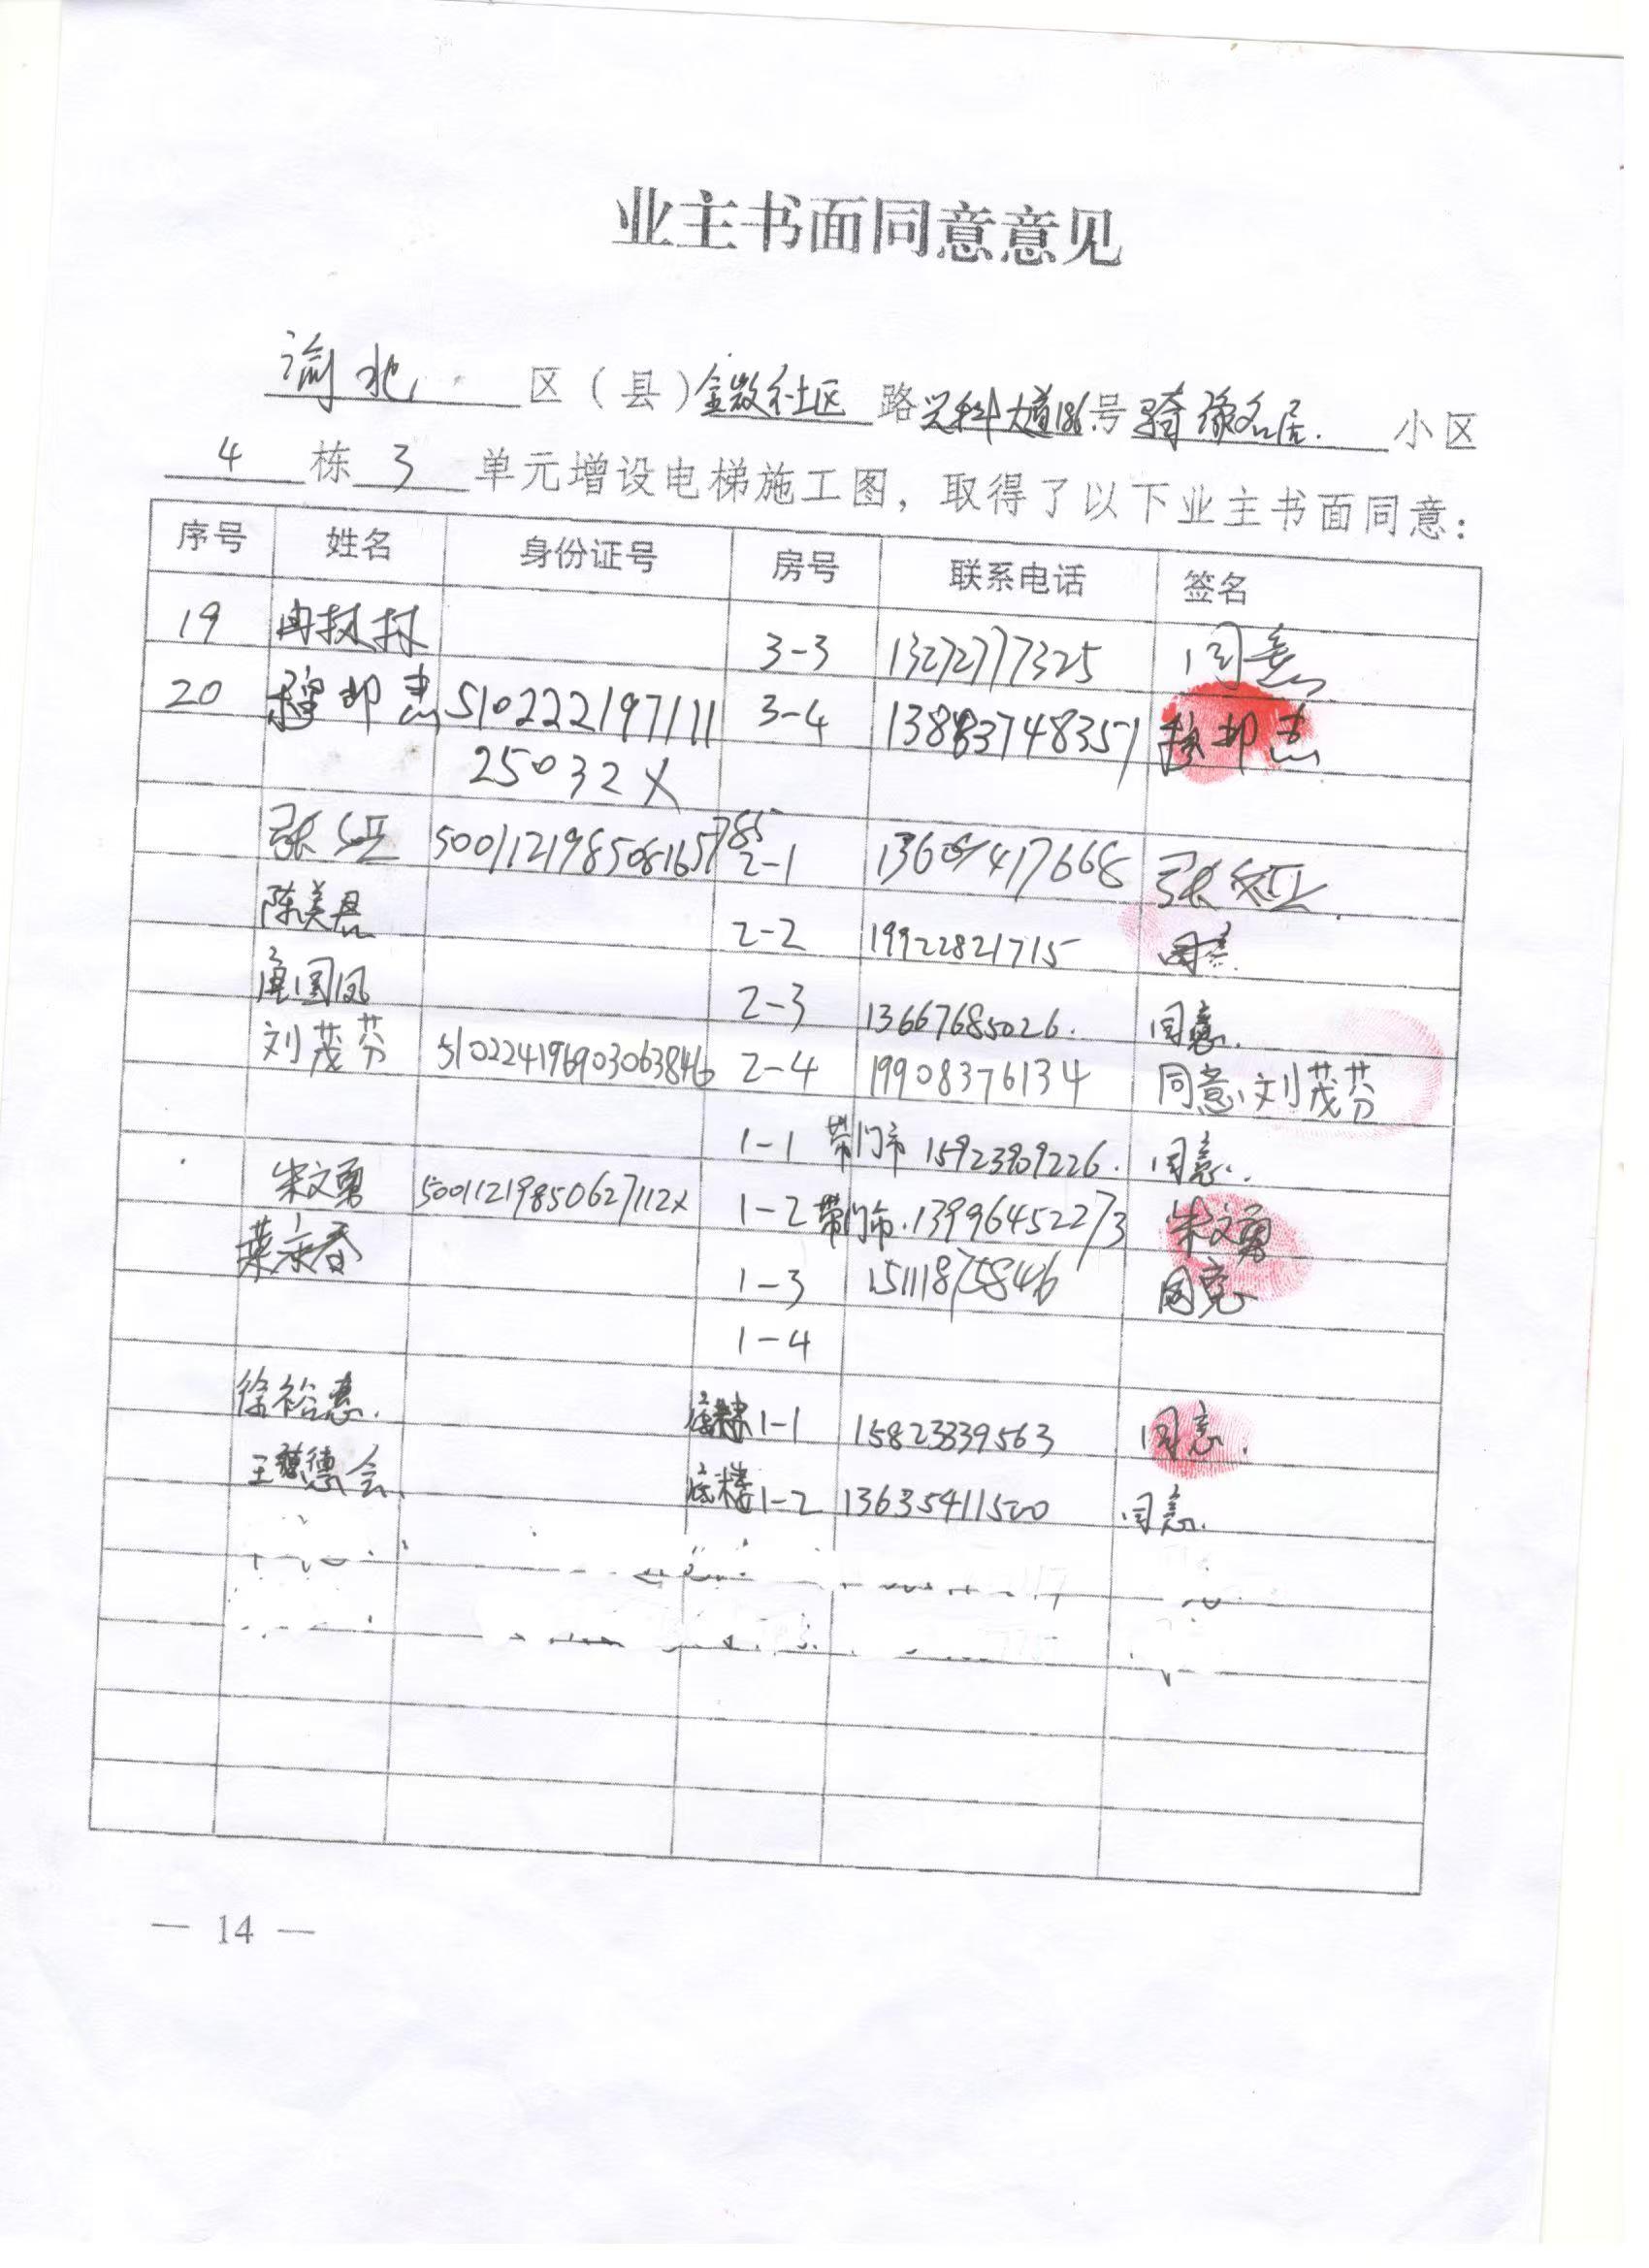 业主书面同意意见
渝北 区（县）金微社区 路兴科大道186号骑豫名居. 小区
4 栋 3 单元增设电梯施工图，取得了以下业主书面同意：
序号 姓名 身份证号 房号 联系电话 签名
19 冉林林 3-3 13272777325 同意
20 程邦惠 510222197111 3-4 13883748357 程邦惠
25032X
张红 500112198508165785 2-1 13609417668 张红
陈美君 2-2 19922821715 同意
唐国凤 2-3 13667685026. 同意.
刘茂芬 510224196903063846 2-4 19908376134 同意 刘茂芬
1-1 带门市 15923909226. 同意.
朱文勇 50011219850627112X 1-2 带门市. 13996452273 朱文勇
叶宗春 1-3 15111875846 同意
1-4
徐裕惠. 底楼1-1 15823339563 同意.
王德会 底楼1-2 13635411500 同意.
— 14 —